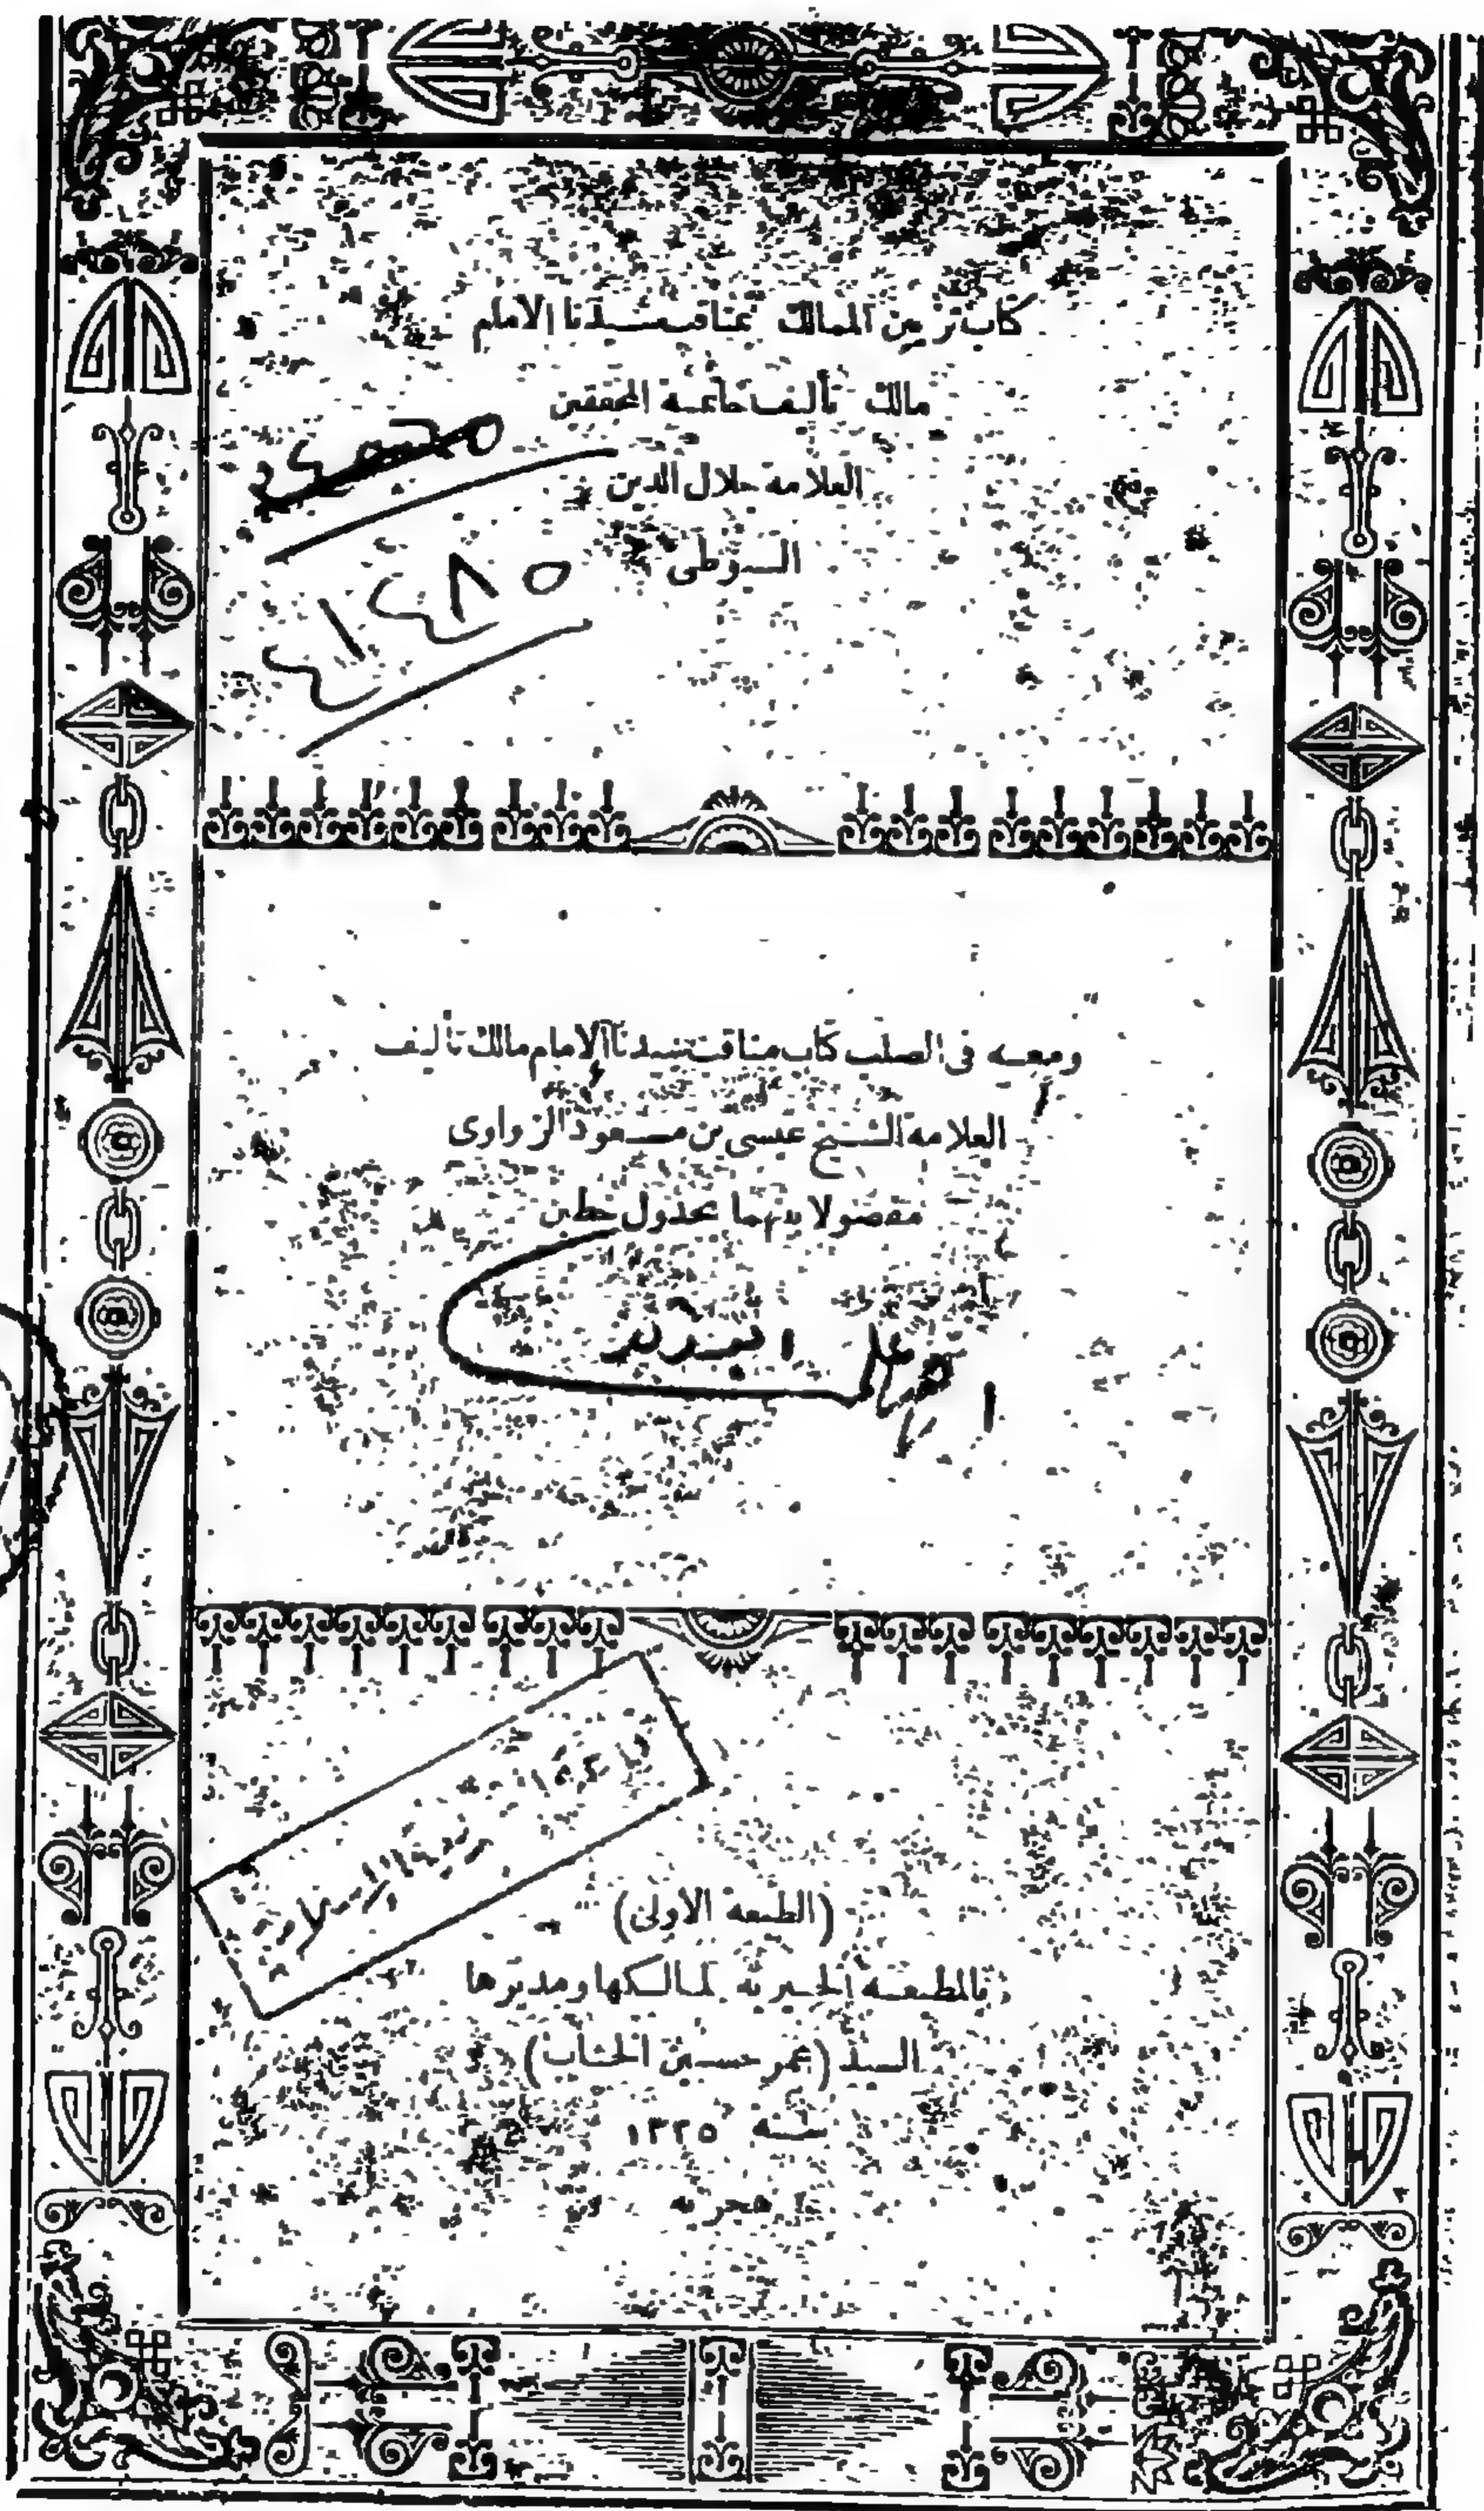 كتاب تزيين الممالك بمناقب سيدنا الامام
مالك تأليف خاتمة المحققين
العلامة جلال الدين
السيوطى
٥٨٤١٤
ومعه فى الصلب كتاب مناقب سيدنا الامام مالك تأليف
العلامة الشيخ عيسى بن مسعود الزواوى
مفصولا بينهما بجدول حلين
(الطبعة الاولى)
بالمطبعة الخيرية لمالكها ومديرها
السيد (عمر حسين الخشاب)
سنة ١٣٢٥
هجريه